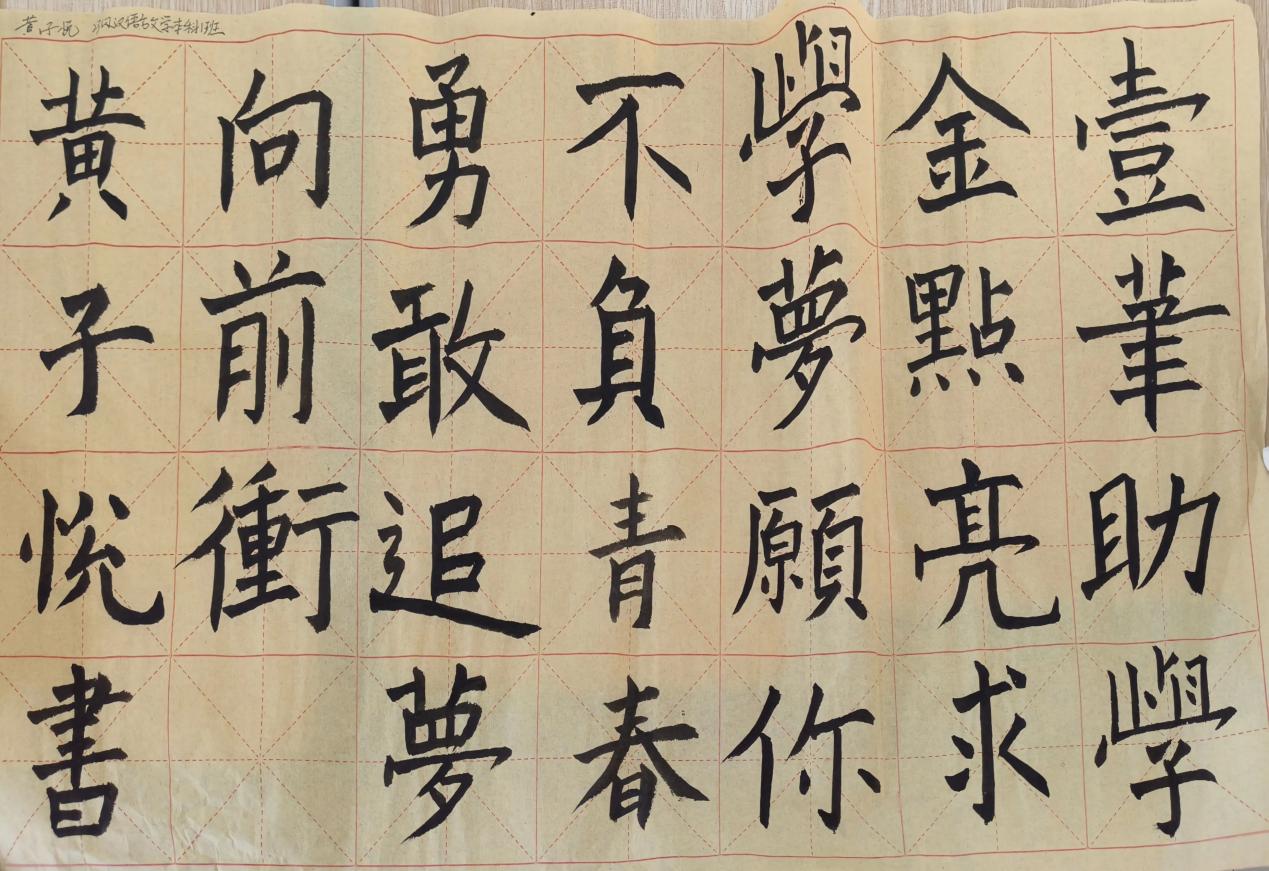 黄子悦 汉语言文学本科1班
壹筆助學
金點亮求
學夢願你
不負青春
勇敢追夢
向前衝
黃子悅書